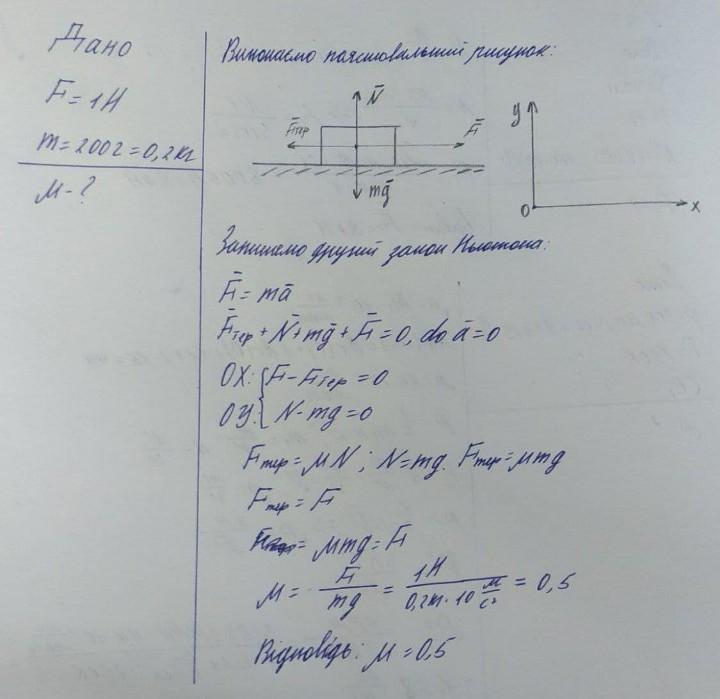 Дано
F = 1Н
m = 200г = 0,2кг
μ - ?
Виконаємо пояснювальний рисунок:
N̄
F̄тер
F̄
mḡ
y
0
x
Запишемо другий закон Ньютона:
F̄ = mā
F̄тер + N̄ + mḡ + F̄ = 0, do ā = 0
OX: { F - Fтер = 0
OY: { N - mg = 0
Fтер = μN ; N = mg. Fтер = μmg
Fтер = F
= μmg = F
μ = F/mg = 1Н/(0,2кг · 10 м/с²) = 0,5
Відповідь: μ = 0,5